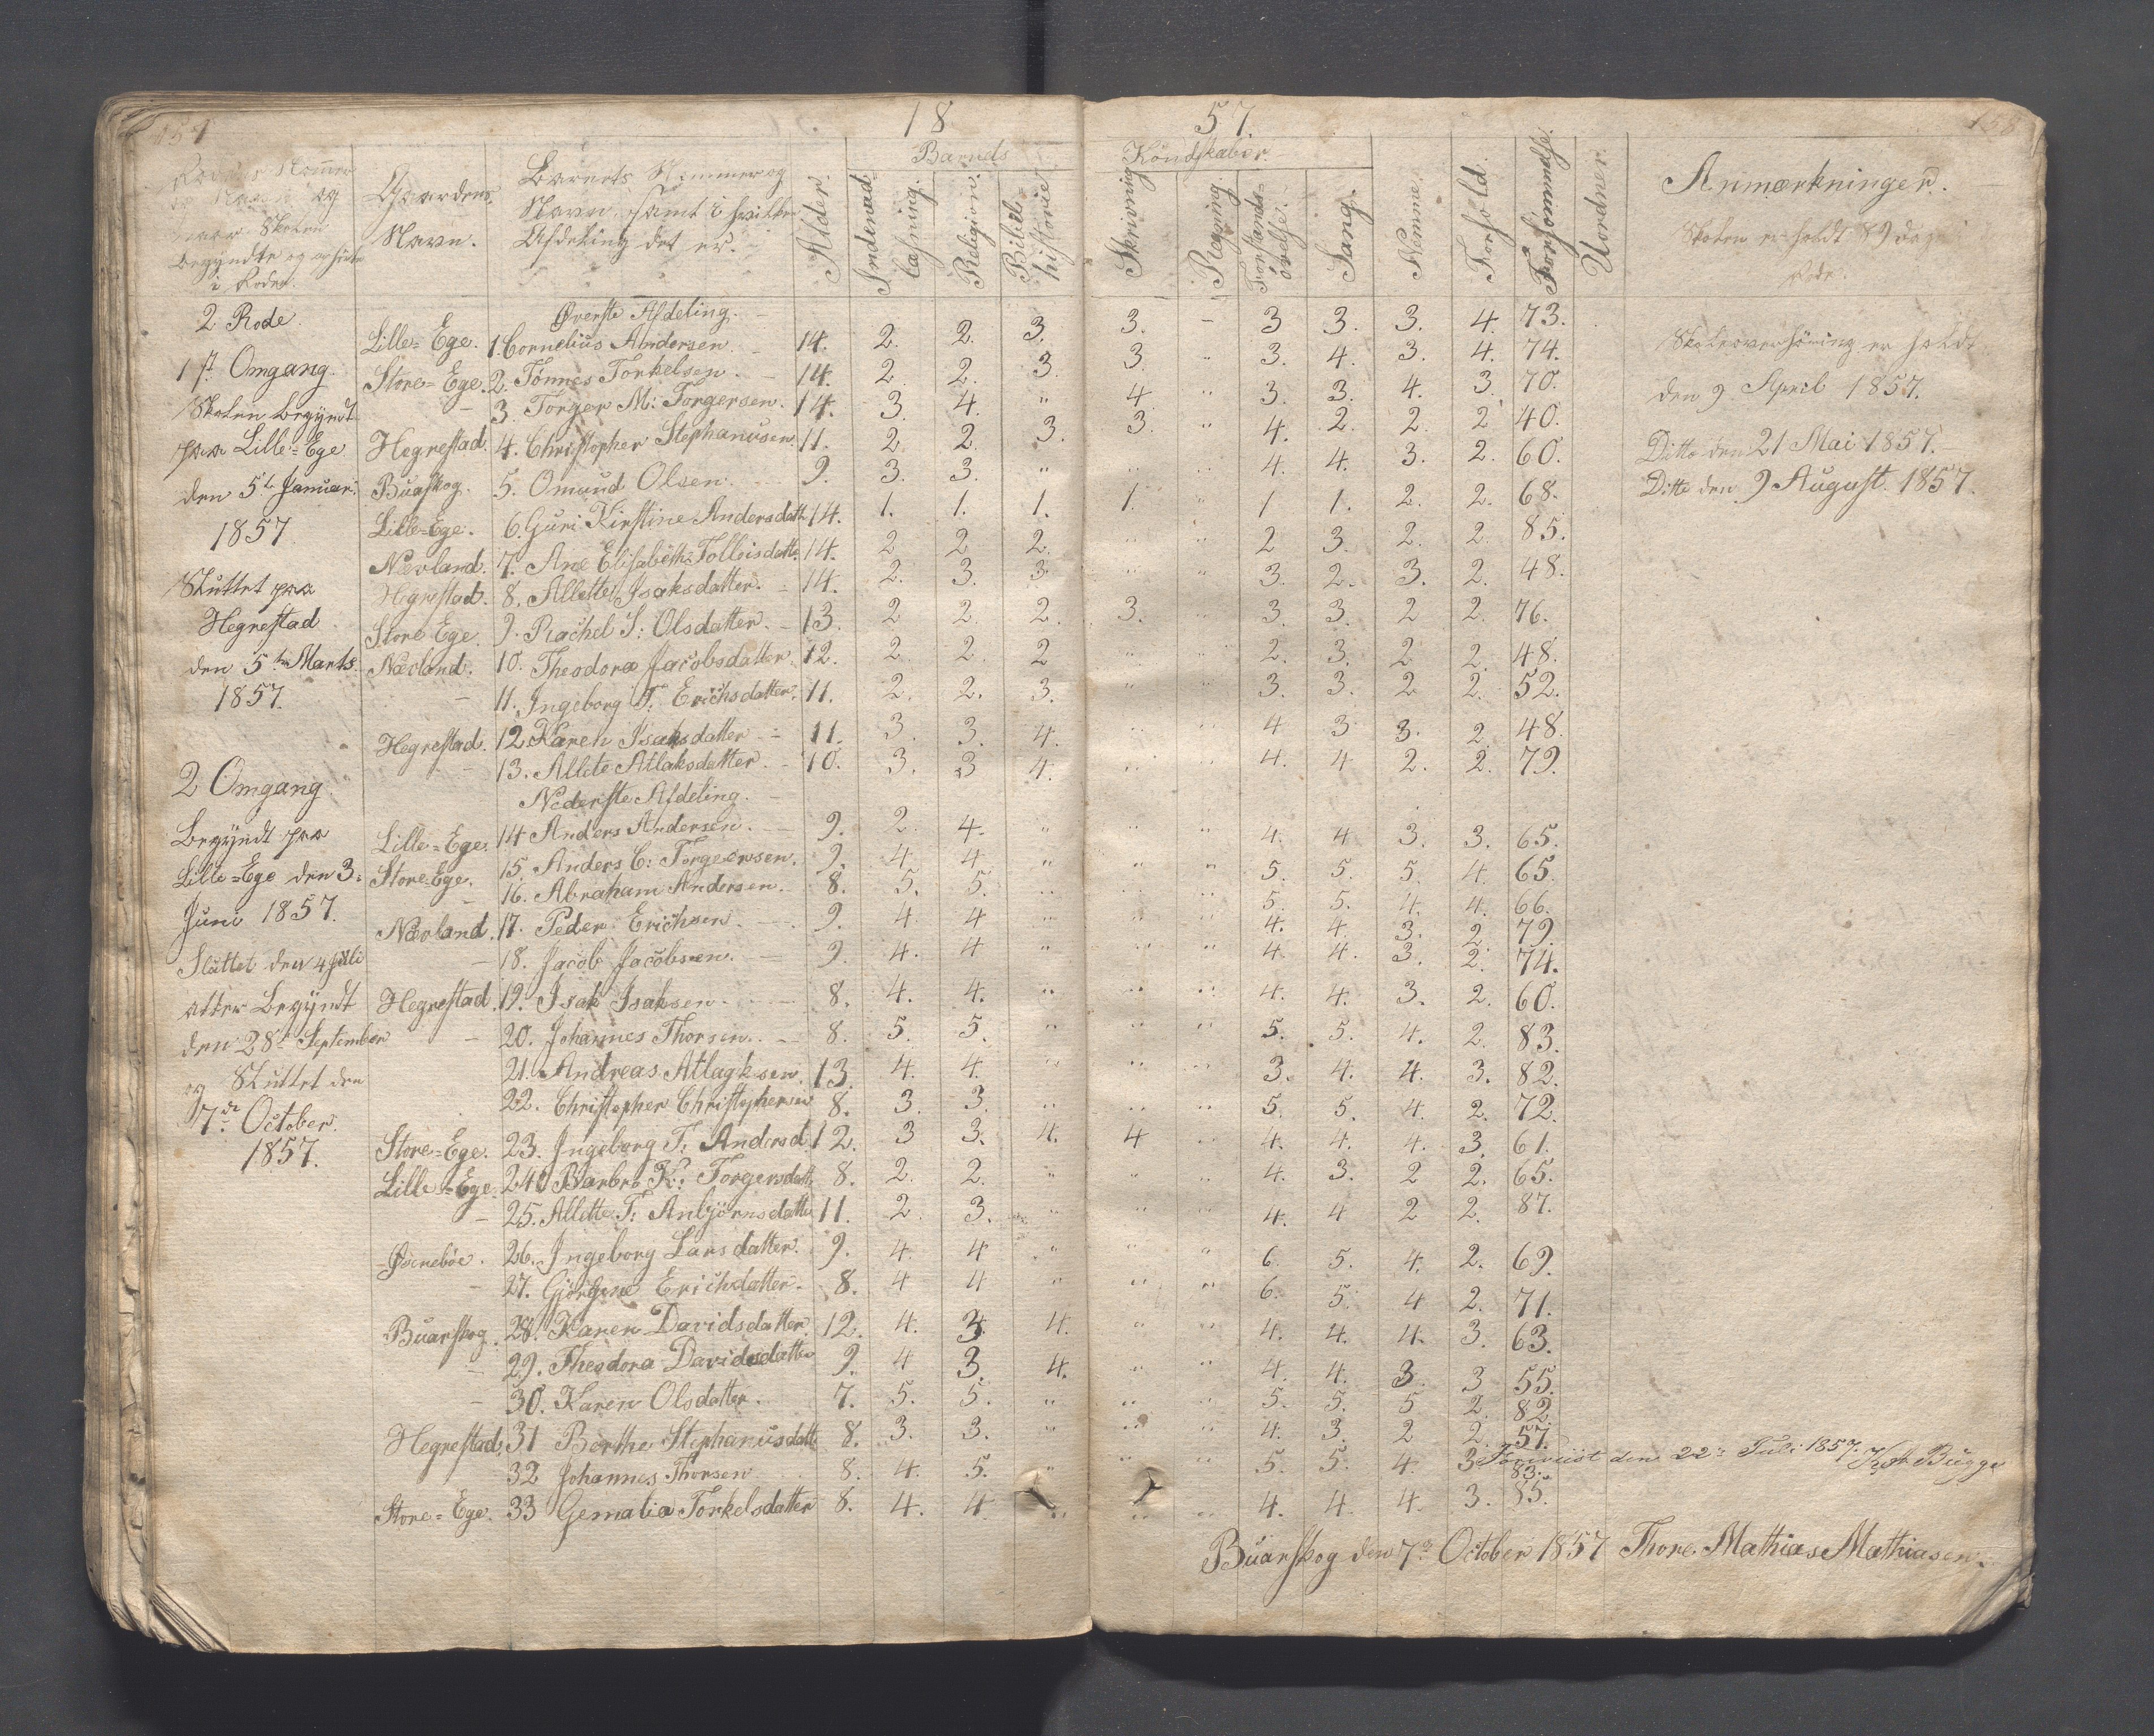 157
18
57.
158
Rodens Nommer
og Navn og
naar Skolen
begyndte og ophørte
i Roden.
Gaardens
Navn.
Barnets Nummer og
Navn samt i hvilken
Afdeling det er.
Alder.
Barnets
Kundskaber.
Indenad-
læsning.
Religion.
Bibel-
historie
Skrivning
Regning.
Forstands-
øvelse.
Sang.
Nemme.
Forhold.
Forsømmelse.
Uordner
Anmærkninger.
Skolen er holdt 89 dage
Rode.
Skoleoverhöring er holdt
den 9 April 1857.
Ditto den 21 Mai 1857.
Ditto den 9 August. 1857.
2 Rode.
1st Omgang.
Skolen begyndt
paa Lille=Ege
den 5te Januar.
1857
Sluttet paa
Hegrestad
den 5te Marts
1857.
2 Omgang
Begyndt paa
Lille=Ege den 3:
Juni 1857.
Sluttet den 4 Juli
atter begyndt
den 28de September
og Sluttet den
7de October.
1857.
Øverste Afdeling.
Lille=Ege. 1. Cornelius Andersen. 14. 2. 2. 3. 3. - 3 3. 3. 4. 73.
Store=Ege. 2. Tönnes Torkelsen. 14. 2 2. 3. 3. " 3. 4. 3. 4. 74.
- 3. Torger M: Torgersen. 14. 3. 4. " 4. " 3. 3. 4. 3. 70.
Hegrestad. 4. Christopher Stephanusen. 11. 2 2. 3. 3. " 4. 2. 2. 2 40.
Buaskog. 5. Omund Olsen. 9. 3. 3. " " " 4. 4. 3. 2. 60.
Lille=Ege. 6. Guri Kirstine Andersdatt. 14. 1. 1. 1. 1. " 1 1. 2. 2. 68.
Nævland. 7. Ane Elisabeth Tolleisdatte. 14. 2 2 2. " " 2 3. 2. 2. 85.
Hegrestad. 8. Allette Isaksdatter. 14. 2. 3. 3. " " 3. 2. 3. 2. 48.
Store Ege 9. Rachel S: Olsdatter. 13. 2 2. 2. 3. " 3. 3. 2 2. 76.
Nævland. 10. Theodora Jacobsdatter. 12. 2 2. 2 " " 2. 3. 2 2. 48.
- 11. Ingeborg T. Erichsdatter. 11. 2. 2. 3. " " 3. 3. 2 2. 52.
Hegrestad. 12 Karen Isaksdatter 11. 3. 3. 4. " " 4 3 3. 2. 48.
- 13. Allete Atlaksdatter. 10. 3. 3 4. " " 4. 4 2. 2. 79.
Nederste Afdeling.
Lille=Ege. 14 Anders Andersen. 9. 2. 4. " " " 4. 4 3. 3. 65.
Store=Ege. 15. Anders C: Torgersen. 9. 4. 4 " " " 5. 5. 5. 4. 65.
- 16. Abraham Andersen. 8. 5. 5. " " " 5. 5. 4. 4. 66.
Nævland. 17. Peder Erichsen. 9. 4. 4 " " " 4. 4. 3. 2. 79.
- 18. Jacob Jacobsen. 9. 4. 4 " " " 4. 4. 3. 2. 74.
Hegrestad. 19. Isak Isaksen. 8. 4. 4. " " " 4. 4. 3. 2. 60.
- 20. Johannes Thorsen. 8. 5. 5. " " " 5. 5. 4. 2. 83.
21. Andreas Atlagksen 13. 4. 4. " " " 3. 4. 4. 3. 82.
22. Christopher Christophersen 8. 3. 3. " " " 5. 5. 4. 2. 72.
Store=Ege. 23. Ingeborg T: Andersd. 12. 3 3. 4. 4 " 4. 4. 4. 3. 61.
Lille=Ege. 24 Barbro K: Torgersdatt. 8. 2. 2. " " " 4. 3. 2 2. 65.
- 25. Allette T: Anbjörnsdatte 11. 2 3. " " " 4. 4 2 2. 87.
Øvreböe. 26. Ingeborg Larsdatter. 9. 4. 4 " " " 6. 5. 4. 2. 69.
- 27. Görgine Erichsdatter. 8. 4 4 " " " 6. 5. 4 2. 71.
Buarskog. 28. Karen Davidsdatter. 12. 4. 3. 4. " " 4. 4. 4. 3. 63.
- 29. Theodora Davidsdatter 9. 4 3. 4. " " 4. 4. 3 3 55.
- 30. Karen Olsdatter. 7. 5. 5. " " " 5. 5. 5 2. 82.
Hegrestad. 31 Berthe Stephanusdatt. 8. 3. 3. " " " 4. 3. 2 2. 57.
32 Johannes Thorsen 8. 4. 5. " " " 5. 5. 4. 3 83.
Foreviist den 22de Juli 1857. Bugge
Store=Ege. 33 Gemalia Torkelsdatter 8. 4. 4 " " " 4. 4 4. 3. 85.
Buarskog den 7de October 1857 Thore Mathias Mathiasen.